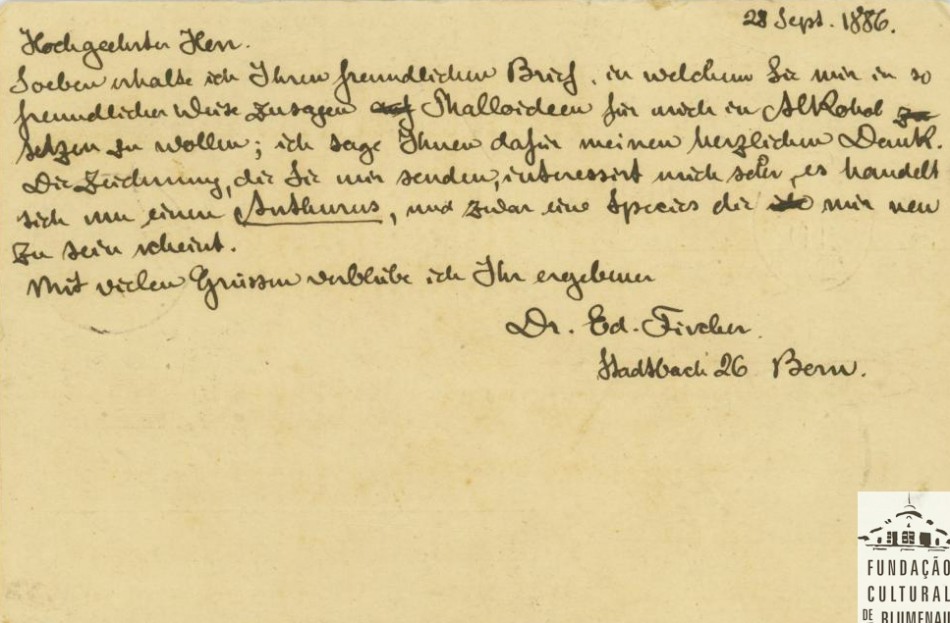 28 Sept. 1886.
Hochgeehrter Herr.
Soeben erhalte ich Ihren freundlichen Brief, in welchem Sie mir in so
freundlicher Weise zusagen Phalloideen für mich in Alkohol
setzen zu wollen; ich sage Ihnen dafür meinen herzlichen Dank.
Die Zeichnung, die Sie mir senden, interessirt mich sehr, es handelt
sich um einen Anthurus, und zwar eine Species die mir neu
zu sein scheint.
Mit vielen Grüssen verbleibe ich Ihr ergebener
Dr. Ed. Fischer.
Stadtbach 26 Bern.
FUNDAÇÃO
CULTURAL
DE BLUMENAU